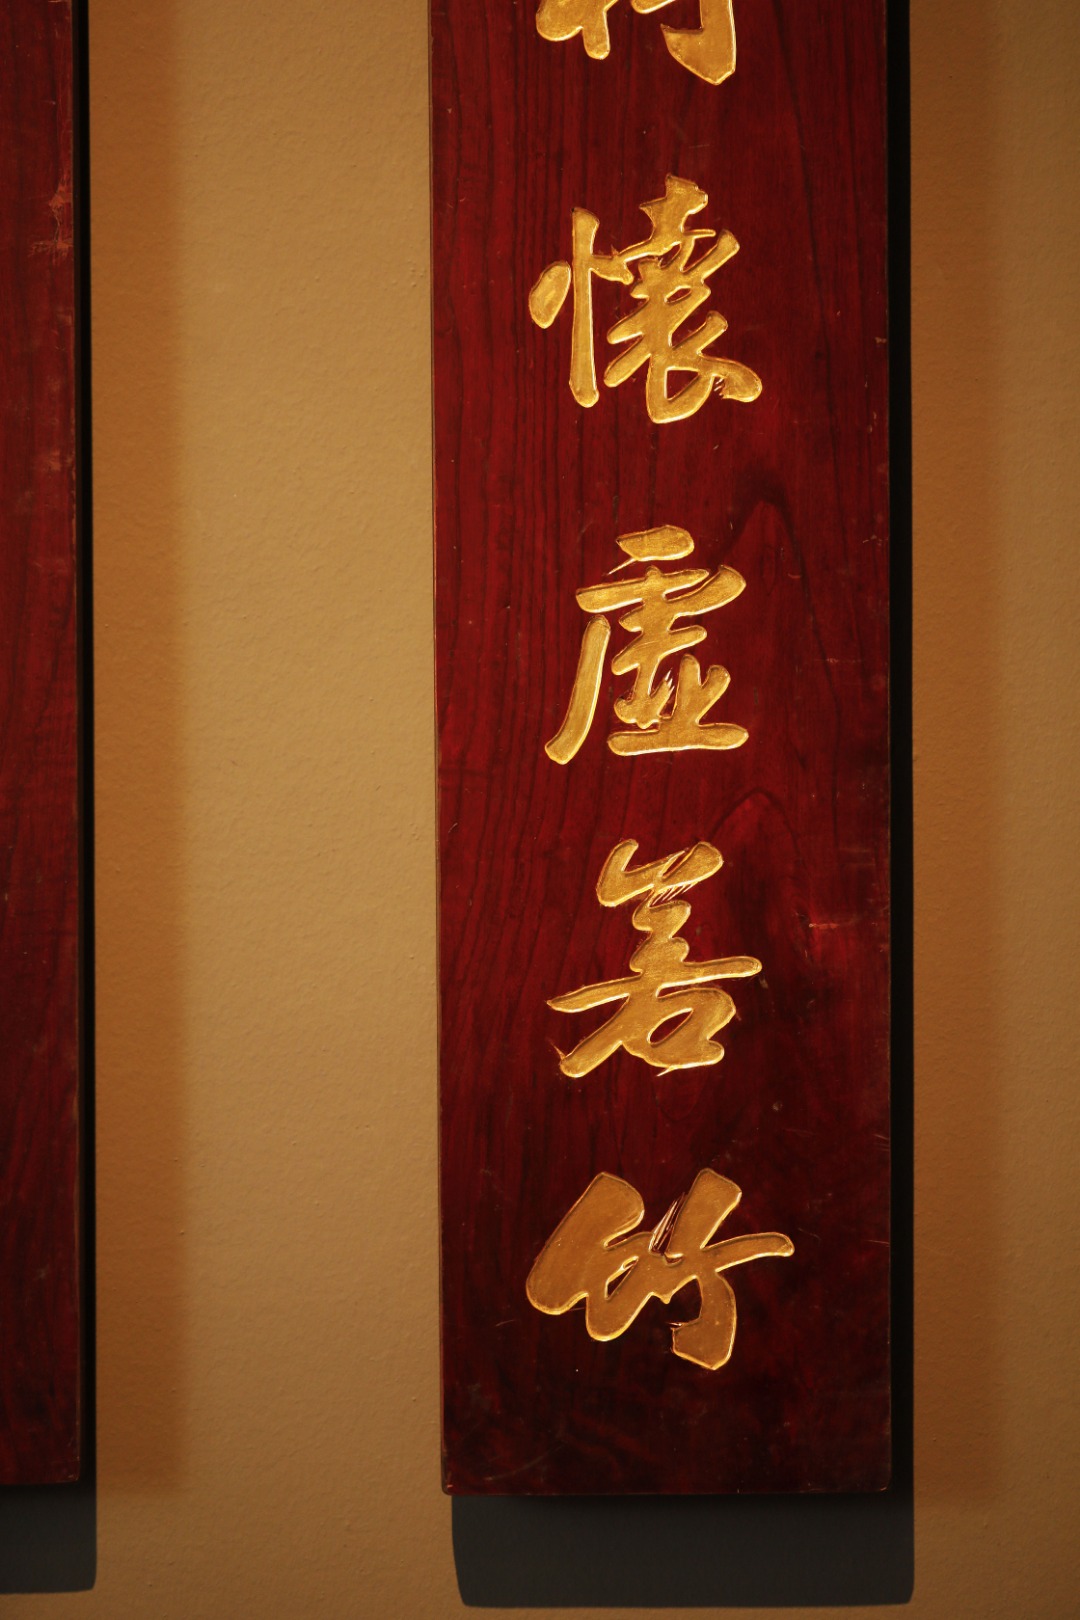 懷虛若竹